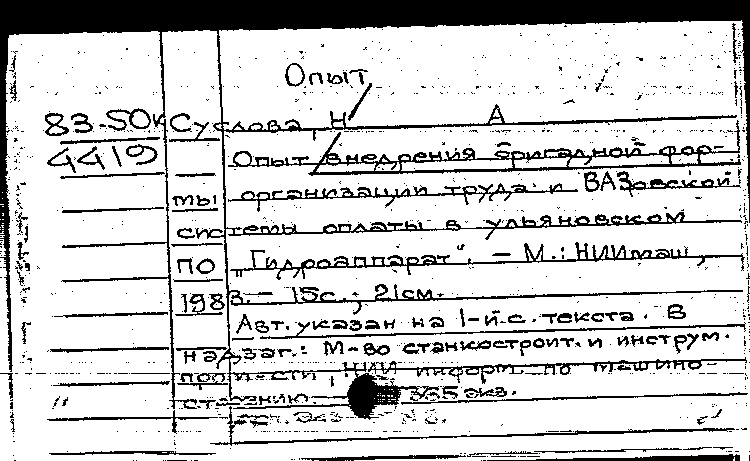 Опыт
83-5OK Суслова, Н А
4419 Опыт внедрения бригадной фор-
мы организации труда и ВАЗовской
системы оплаты в ульяновском
ПО "Гидроаппарат". - М.: НИИмаш,
1983. - 15с.; 21см.
Авт. указан на 1-й с. текста. В
надзаг.: М-во станкостроит. и инструм.
пром-сти, НИИ информ. по машино-
строению. 335 экз.